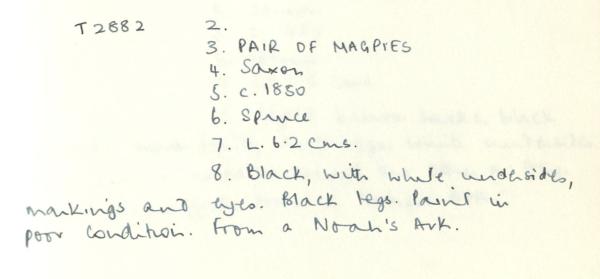 T2882 2.
3. PAIR OF MAGPIES
4. Saxon
5. c. 1850
6. Spruce
7. L. 6.2 cms.
8. Black, with white undersides,
markings and eyes. Black legs. Paint in
poor condition. From a Noah's Ark.